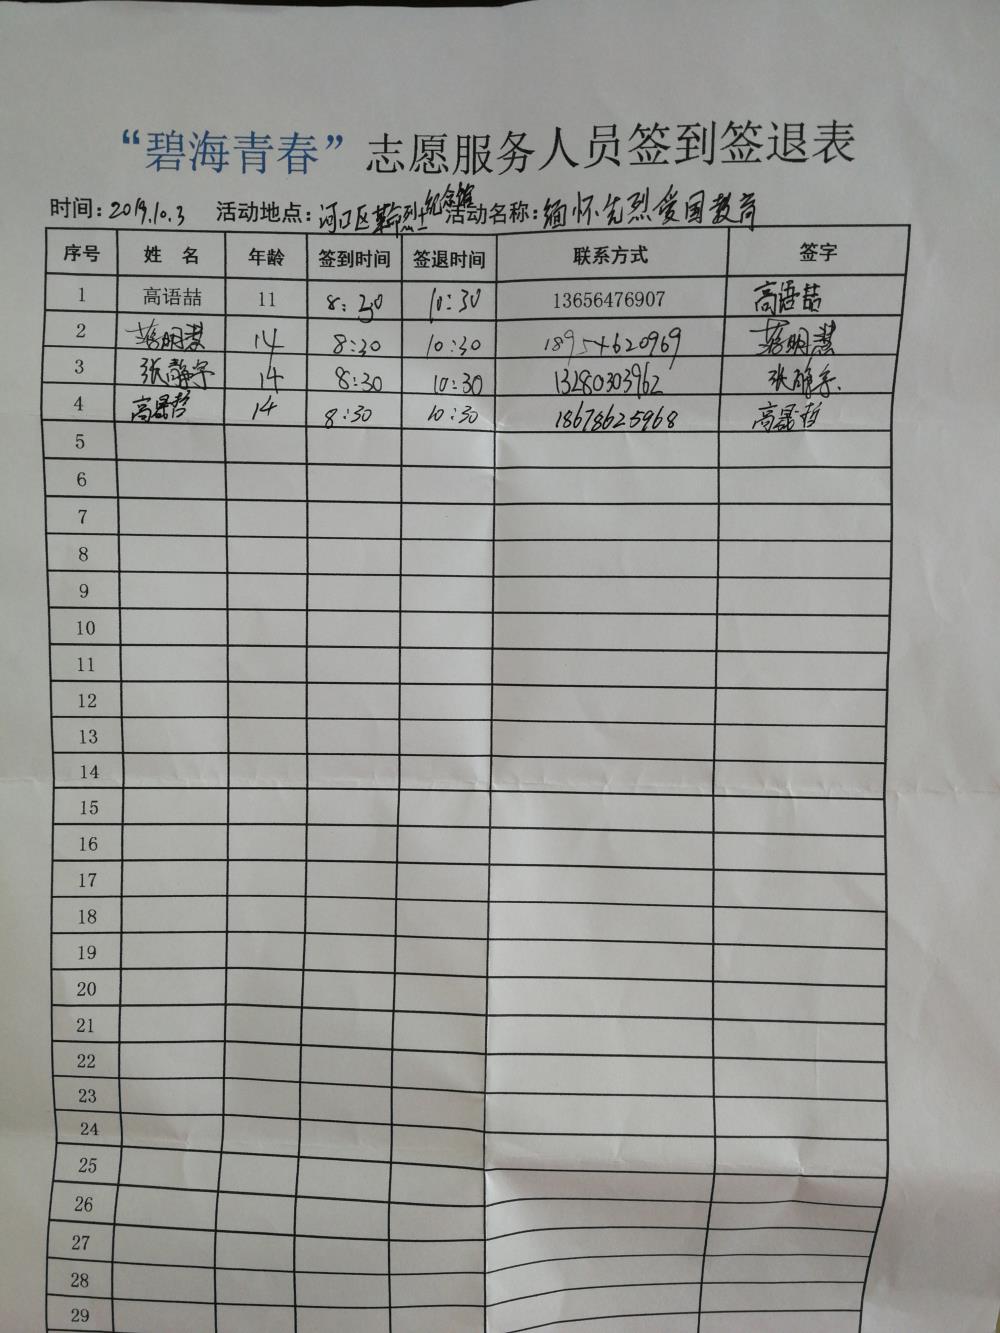 “碧海青春”志愿服务人员签到签退表
时间：2019.10.3 活动地点：河口区革命烈士纪念馆 活动名称：缅怀先烈爱国教育
序号 姓 名 年龄 签到时间 签退时间 联系方式 签字
1 高语喆 11 8:30 10:30 13656476907 高语喆
2 明慧 14 8:30 10:30 18954620969 明慧
3 张静宇 14 8:30 10:30 13280303962 张静宇
4 高晟哲 14 8:30 10:30 18678625968 高晟哲
5
6
7
8
9
10
11
12
13
14
15
16
17
18
19
20
21
22
23
24
25
26
27
28
29